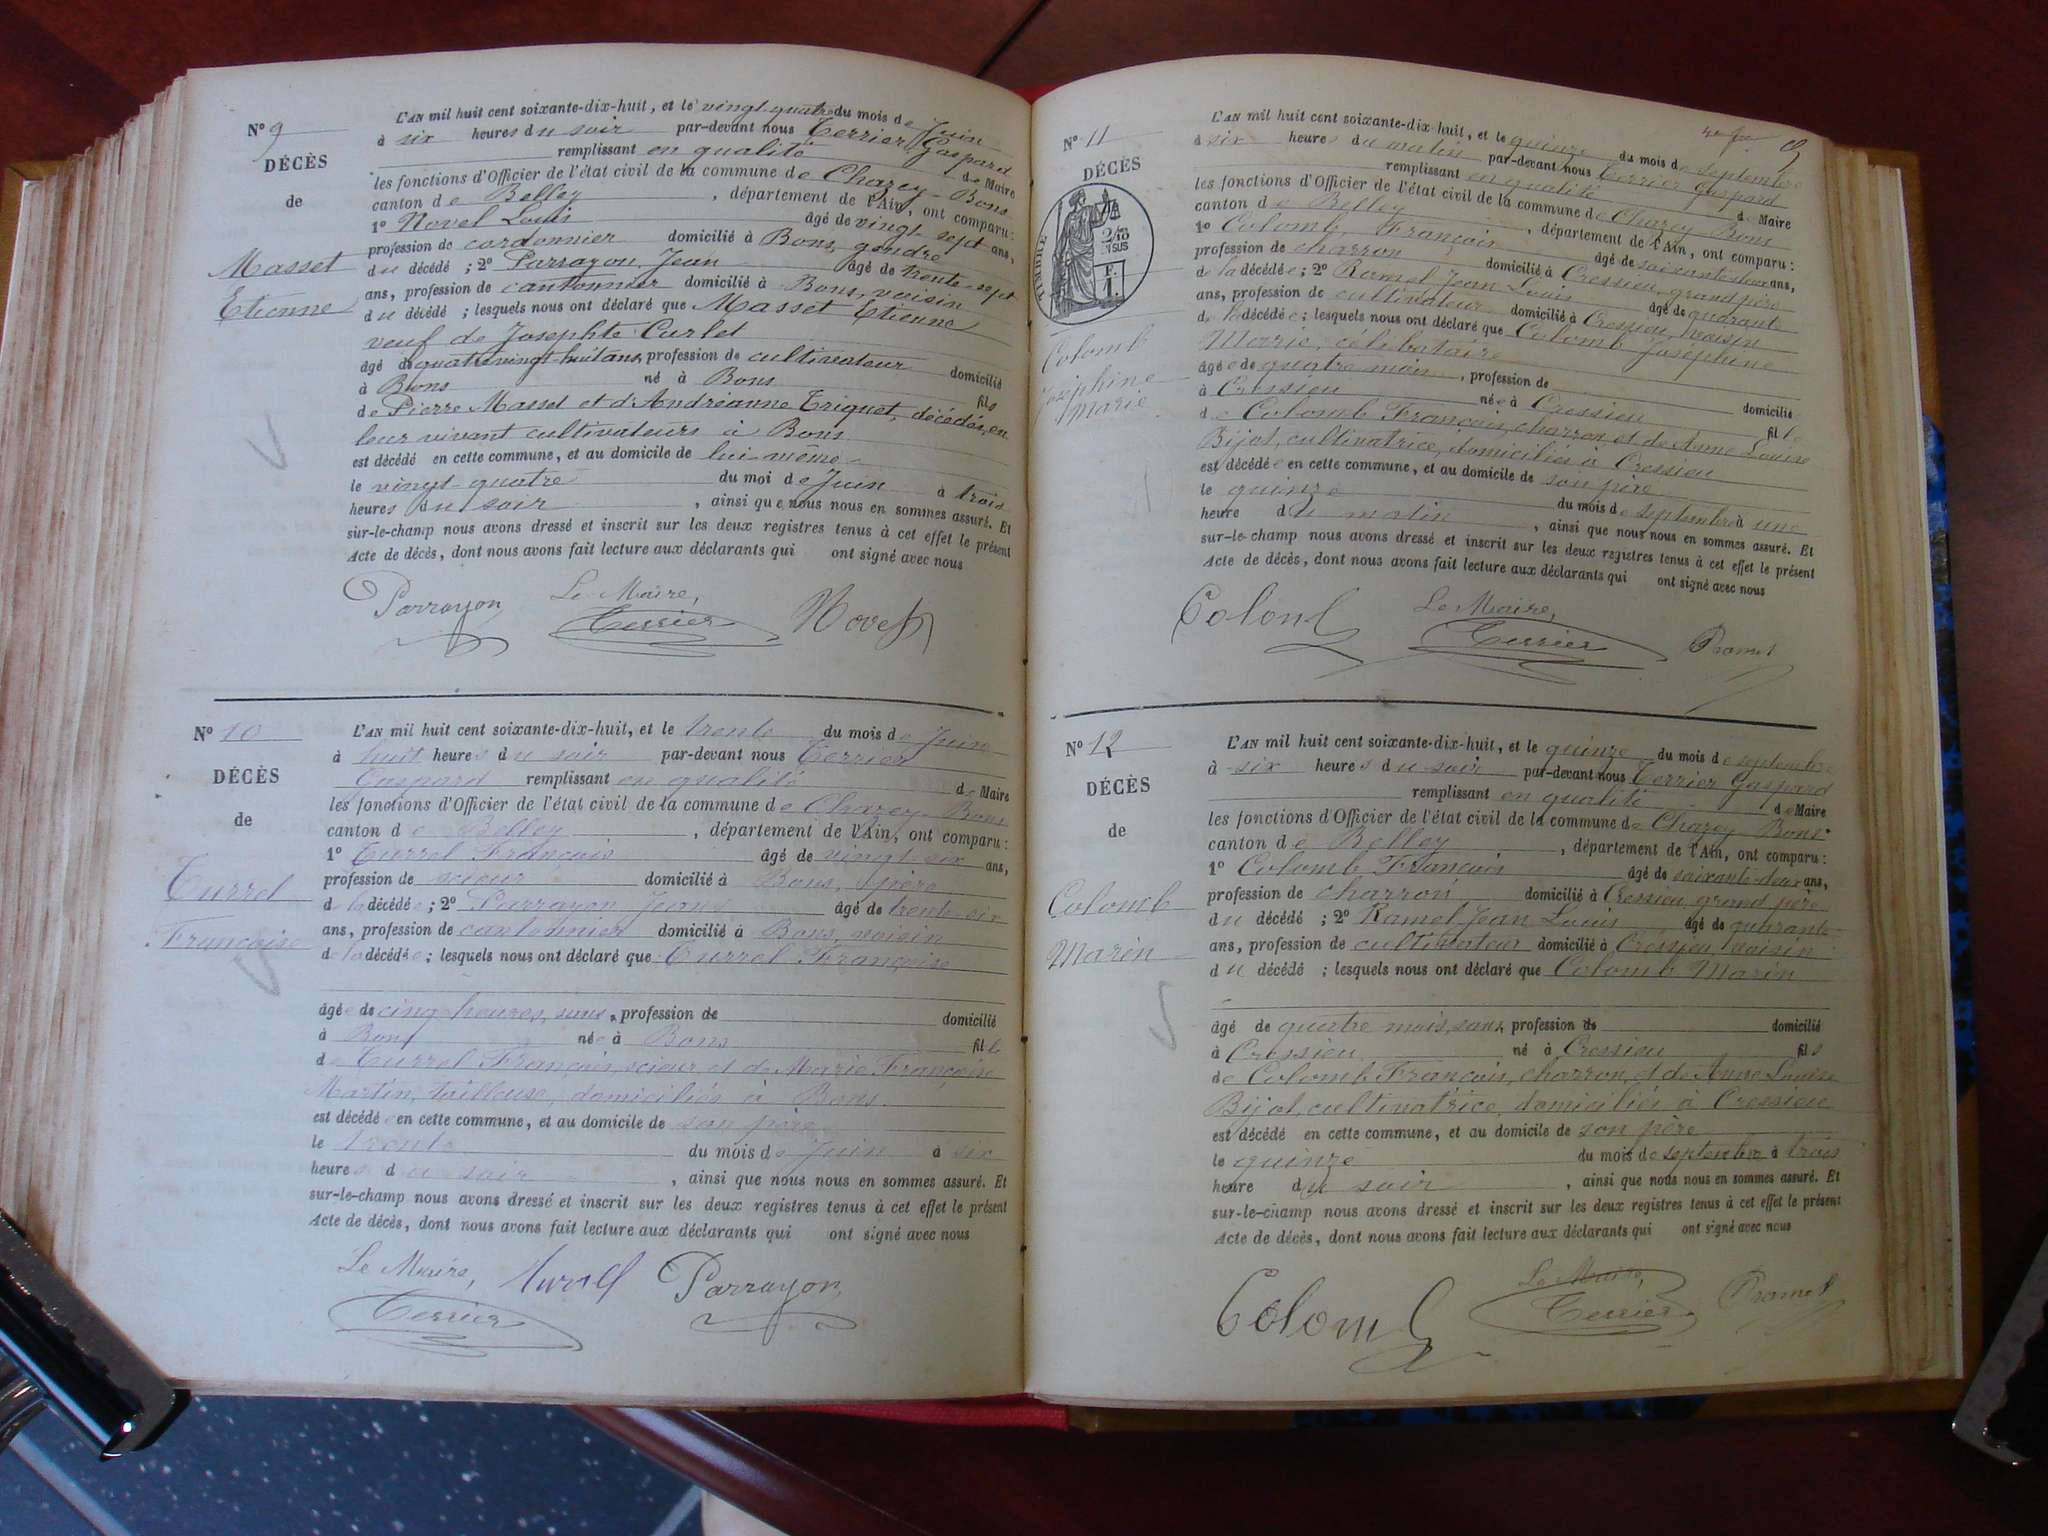 N° 9
DÉCÈS
de
Masset
Etienne
L'AN mil huit cent soixante-dix-huit, et le vingt-quatre du mois de Juin
à six heures du soir par-devant nous Terrier Gaspard
remplissant en qualité de Maire
les fonctions d'Officier de l'état civil de la commune de Chazey-Bons
canton de Belley, département de l'Ain, ont comparu :
1° Novel Louis âgé de vingt sept ans,
profession de cordonnier domicilié à Bons, gendre
du décédé ; 2° Parrayon Jean âgé de trente-sept
ans, profession de cantonnier domicilié à Bons, voisin
du décédé ; lesquels nous ont déclaré que Masset Etienne
veuf de Josephte Curlet
âgé de quatre-vingt-huit ans, profession de cultivateur domicilié
à Bons né à Bons fils
de Pierre Masset et d'Andréanne Triquet, décédés, en
leur vivant cultivateurs à Bons
est décédé en cette commune, et au domicile de lui-même
le vingt-quatre du moi de Juin à trois
heures du soir, ainsi que nous nous en sommes assuré. Et
sur-le-champ nous avons dressé et inscrit sur les deux registres tenus à cet effet le présent
Acte de décès, dont nous avons fait lecture aux déclarants qui ont signé avec nous
Parrayon Le Maire, Novel
Terrier
N° 10
DÉCÈS
de
Turrel
Françoise
L'AN mil huit cent soixante-dix-huit, et le trente du mois de Juin
à huit heures du soir par-devant nous Terrier
Gaspard remplissant en qualité de Maire
les fonctions d'Officier de l'état civil de la commune de Chazey-Bons
canton de Belley, département de l'Ain, ont comparu :
1° Turrel François âgé de vingt-six ans,
profession de scieur domicilié à Bons, père
de la décédée ; 2° Parrayon Jeany âgé de trente-six
ans, profession de cantonnier domicilié à Bons, voisin
de la décédée ; lesquels nous ont déclaré que Turrel Françoise
âgée de cinq heures, sans profession de domicilié
à Bons née à Bons fille
de Turrel François, scieur, et de Marie Françoise
Martin, tailleuse, domiciliés à Bons
est décédée en cette commune, et au domicile de son père
le trente du mois de Juin à six
heures du soir, ainsi que nous nous en sommes assuré. Et
sur-le-champ nous avons dressé et inscrit sur les deux registres tenus à cet effet le présent
Acte de décès, dont nous avons fait lecture aux déclarants qui ont signé avec nous
Le Maire, Turrel Parrayon
Terrier
N° 11
DÉCÈS
TIMBRE
Colomb
Joséphine
Marie
L'AN mil huit cent soixante-dix-huit, et le quinze du mois de septembre
à six heures du matin par-devant nous Terrier Gaspard
remplissant en qualité de Maire
les fonctions d'Officier de l'état civil de la commune de Chazey-Bons
canton de Belley, département de l'Ain, ont comparu :
1° Colomb, François âgé de soixante-deux ans,
profession de charron domicilié à Cressieu, grand père
de la décédée ; 2° Ramel Jean Louis âgé de quarante
ans, profession de cultivateur domicilié à Cressieu, voisin
de la décédée ; lesquels nous ont déclaré que Colomb Joséphine
Marie, célibataire
âgée de quatre mois, profession de domicilié
à Cressieu née à Cressieu fille
de Colomb François, charron, et de Anne Louise
Bijot, cultivatrice, domiciliés à Cressieu
est décédée en cette commune, et au domicile de son père
le quinze du mois de septembre à une
heure du matin, ainsi que nous nous en sommes assuré. Et
sur-le-champ nous avons dressé et inscrit sur les deux registres tenus à cet effet le présent
Acte de décès, dont nous avons fait lecture aux déclarants qui ont signé avec nous
Colomb Le Maire,
Terrier Ramel
N° 12
DÉCÈS
de
Colomb
Marin
L'AN mil huit cent soixante-dix-huit, et le quinze du mois de septembre
à six heures du soir par-devant nous Terrier Gaspard
remplissant en qualité de Maire
les fonctions d'Officier de l'état civil de la commune de Chazey-Bons
canton de Belley, département de l'Ain, ont comparu :
1° Colomb François âgé de soixante-deux ans,
profession de charron domicilié à Cressieu, grand père
du décédé ; 2° Ramel Jean Louis âgé de quarante
ans, profession de cultivateur domicilié à Cressieu, voisin
du décédé ; lesquels nous ont déclaré que Colomb Marin
âgé de quatre mois, sans profession de domicilié
à Cressieu né à Cressieu fils
de Colomb François, charron, et de Anne Louise
Bijot, cultivatrice, domiciliés à Cressieu
est décédé en cette commune, et au domicile de son père
le quinze du mois de septembre à trois
heure du soir, ainsi que nous nous en sommes assuré. Et
sur-le-champ nous avons dressé et inscrit sur les deux registres tenus à cet effet le présent
Acte de décès, dont nous avons fait lecture aux déclarants qui ont signé avec nous
Colomb Le Maire, Ramel
Terrier